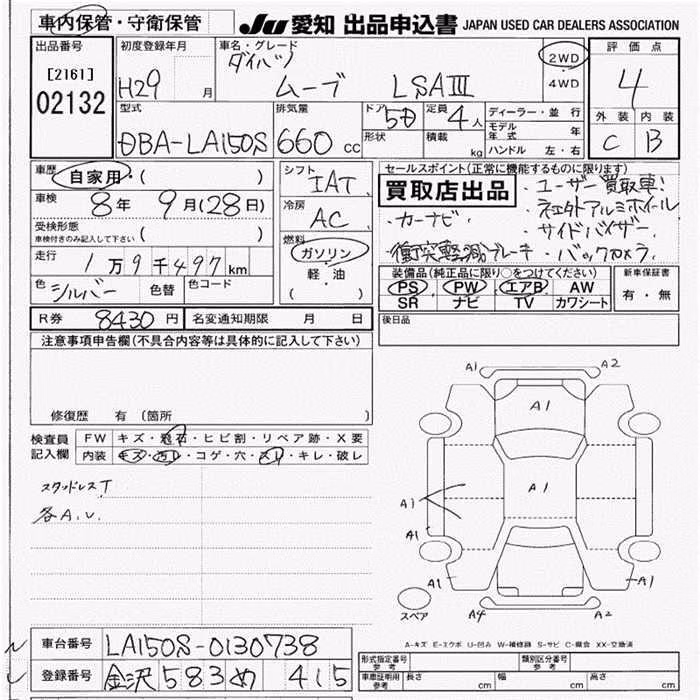 車内保管・守衛保管
JU 愛知 出品申込書 JAPAN USED CAR DEALERS ASSOCIATION
出品番号 初度登録年月 車名・グレード 評価点
[2161] ダイハツ 2WD
02132 H29 月 ムーブ LSAⅢ 4WD 4
型式 排気量 ドア 5D 定員 4人 ディーラー・並行 外装 内装
DBA-LA150S 660 cc 形状 積載 kg モデル年式 年 C B
ハンドル 左・右
車歴 自家用・( ) シフト IAT セールスポイント(正常に機能するものに限ります)
車検 8年 9月(28日) 冷房 AC 買取店出品 ・ユーザー買取車!
受検形態 ( ) ・カーナビ ・社外アルミホイル
車検付きのみ記入して下さい ・サイドバイザー
走行 1万9千497km 燃料 ガソリン 衝突軽減ブレーキ ・バックカメラ
色 シルバー 色替 色コード 軽・油 ( )
装備品(純正品に限り○をつけてください) 新車保証書
PS PW エアB AW 有・無
SR ナビ TV カワシート
R券 8430円 名変通知期限 月 日 後日品
注意事項申告欄(不具合内容等は具体的に記入して下さい)
修復歴 有 (箇所 )
検査員 FW キズ・飛石・ヒビ割・リペア跡・X要
記入欄 内装 キズ・汚レ・コゲ・穴・スレ・キレ・破レ
スタッドレスT
各A.U.
A1 A2
A1
A1
A1
A1
A1 A1
スペア A4 A2
A-キズ E-エクボ U-凹み W-補修跡 S-サビ C-腐食 XX-交換済
車台番号 LA150S-0130738
登録番号 金沢 583 め 415
形式指定番号 参考 類別区分番号 参考
車庫証明用 参考 長さ cm 幅 cm 高さ cm